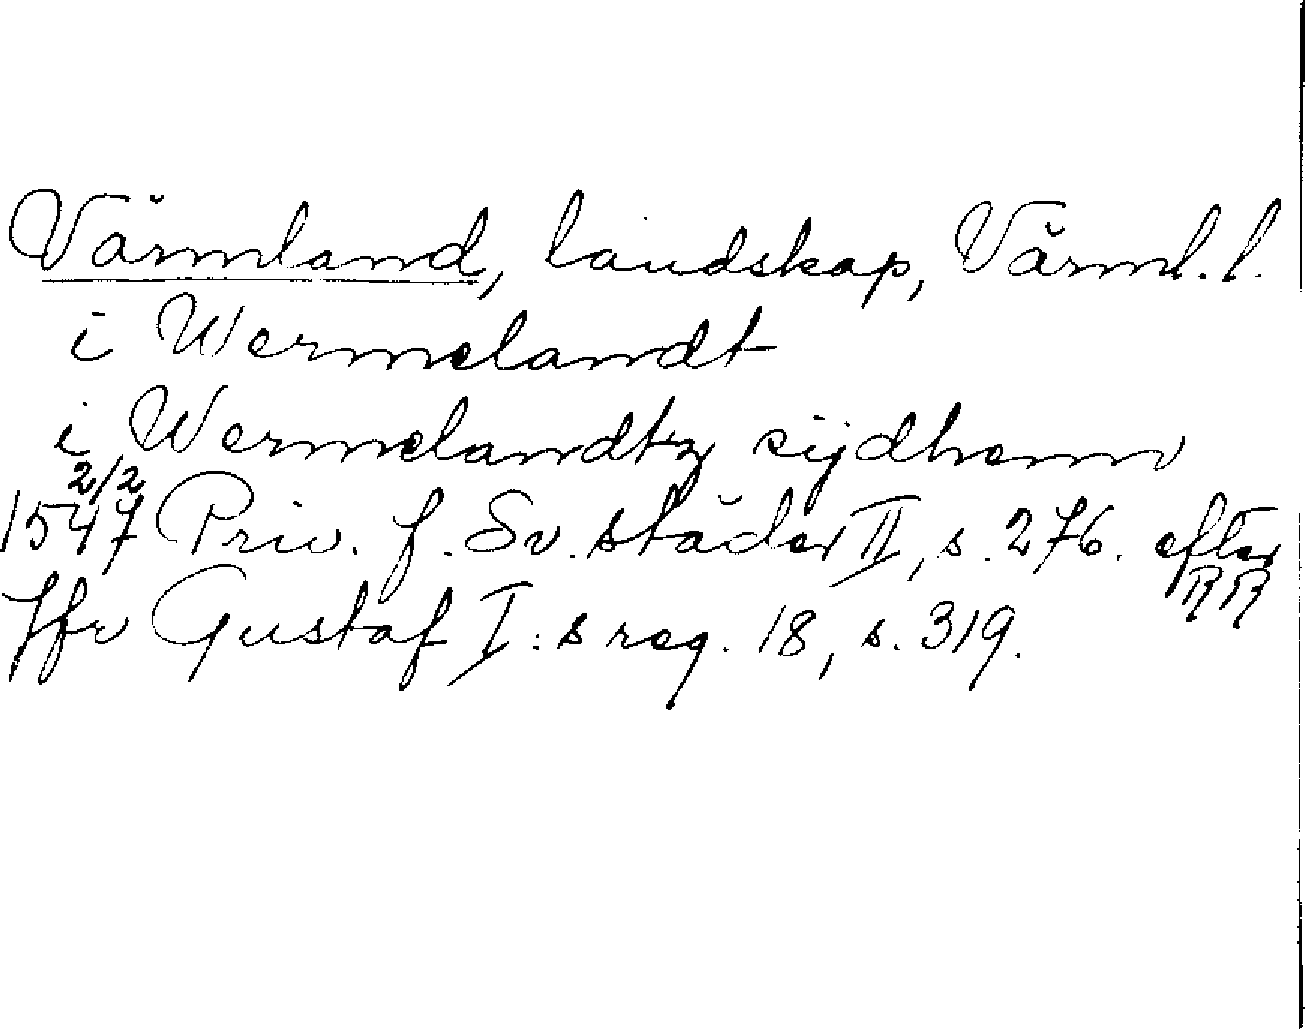 Värmland, landskap, Värml. l.
i Wermelandt
i Wermelandtz sijdhenn
1547 2/2 Priv. f. Sv. städer II, s. 276. efter RR
Jfr Gustaf I:s reg. 18, s. 319.